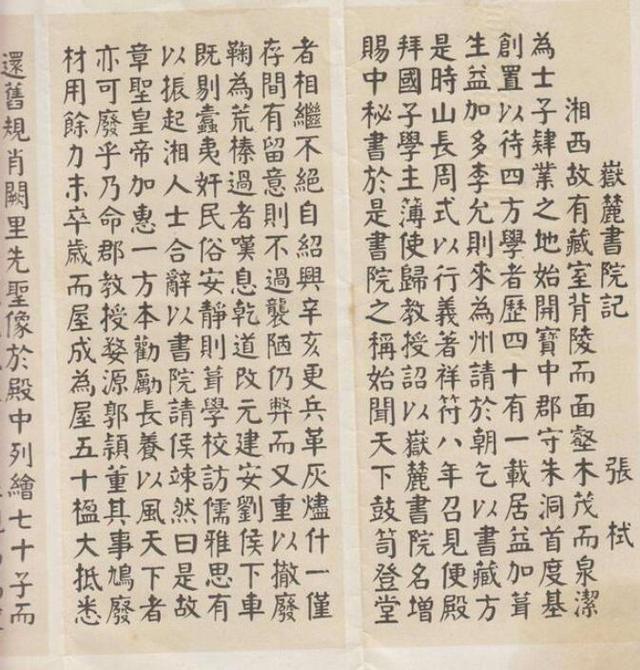 嶽麓書院記 張栻
湘西故有藏室背陵而面壑木茂而泉潔
為士子肄業之地始開寶中郡守朱洞首度基
創置以待四方學者歷四十有一載居益加葺
生益加多李允則來為州請於朝乞以書藏方
是時山長周式以行義著祥符八年召見便殿
拜國子學主簿使歸教授詔以嶽麓書院名增
賜中秘書於是書院之稱始聞天下鼓笥登堂
者相繼不絕自紹興辛亥更兵革灰燼什一僅
存間有留意則不過襲陋仍弊而又重以撤廢
鞠為荒榛過者嘆息乾道改元建安劉侯下車
既剔蠹夷奸民俗安靜則葺學校訪儒雅思有
以振起湘人士合辭以書院請侯竦然曰是故
章聖皇帝加惠一方本勸勵長養以風天下者
亦可廢乎乃命郡教授婺源郭穎董其事鳩廢
材用餘力未卒歲而屋成為屋五十楹大抵悉
還舊規肖闕里先聖像於殿中列繪七十子而